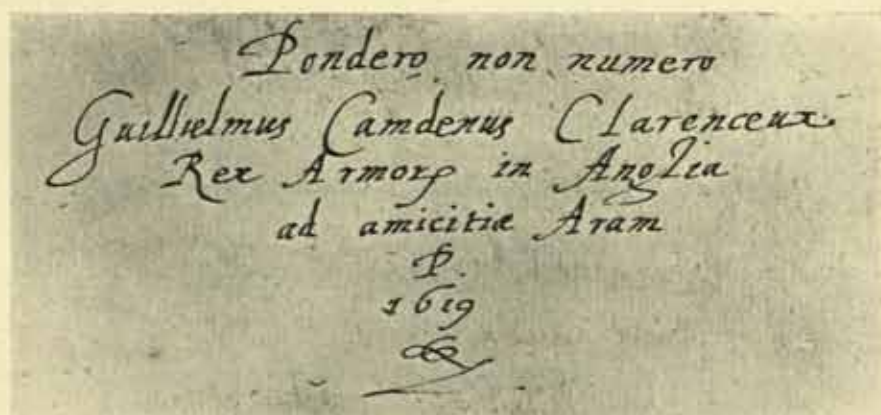 Pondero non numero
Guillielmus Camdenus Clarenceux
Rex Armoꝝ in Anglia
ad amicitiæ Aram
P.
1619